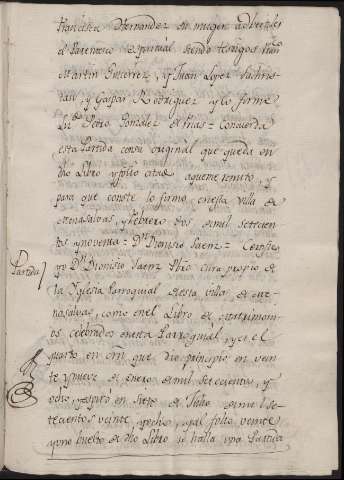 Francisca Hernandez su muger, advertiles
el Parentesco espiritual siendo testigos
Martin Gutierrez, y Juan Lopez Sachris-
tan, y Gaspar Rodriguez y lo firme
Lizdo Pedro Gonzalez de frias = Concuerda
esta Partida con su original que queda en
dho Libro y folio citado aqueme remito, y
para que conste lo firmo en esta villa de
y febrero dos de mil setecien-
tos y noventa = Dn Dionisio Saenz = Certifico
Partida
yo Dn Dionisio Saenz Pbro cura propio de
la Yglesia Parroquial de esta villa de
como en el Libro de matrimoni-
os celebrados en esta Parroquial, y es el
quarto en orn que dio principio en vein
te y nueve de enero de mil setecientos, y
ocho, y espiró en siete de Julio de mil se-
tecientos veinte, y ocho, y al folio veinte
y uno buelto de dho Libro se halla una Partida